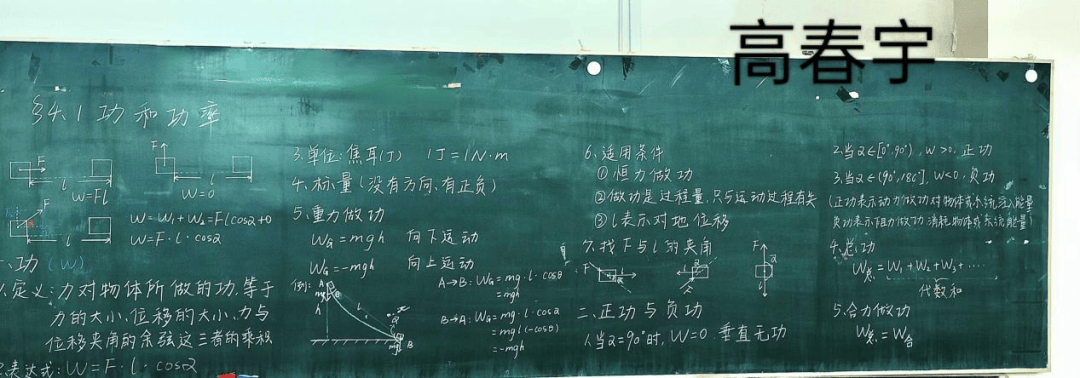 高春宇
§4.1 功和功率
F
l
W=Fl
F
l
W=0
F
l
W=W₁+W₂=Flcosα+0
W=F·l·cosα
一、功(W)
1.定义:力对物体所做的功,等于
力的大小、位移的大小、力与
位移夹角的余弦这三者的乘积
2.表达式:W=F·l·cosα
3.单位:焦耳(J) 1J=1N·m
4.标量(没有方向、有正负)
5.重力做功
W_G=mgh 向下运动
W_G=-mgh 向上运动
例:
A
mg
h
l
B
mg
A→B:W_G=mg·l·cosθ
=mgh
B→A:W_G=mg·l·cosα
=mgl(-cosθ)
=-mgh
6.适用条件
①恒力做功
②做功是过程量,只与运动过程有关
③l表示对地位移
7.找F与l的夹角
F
l
F
α
二、正功与负功
1.当α=90°时,W=0 垂直无功
2.当α∈[0°,90°),W>0,正功
3.当α∈(90°,180°],W<0,负功
(正功表示动力做功对物体或系统注入能量
负功表示阻力做功,消耗物体或系统能量)
4.总功
W总=W₁+W₂+W₃+……
代数和
5.合力做功
W总=W合